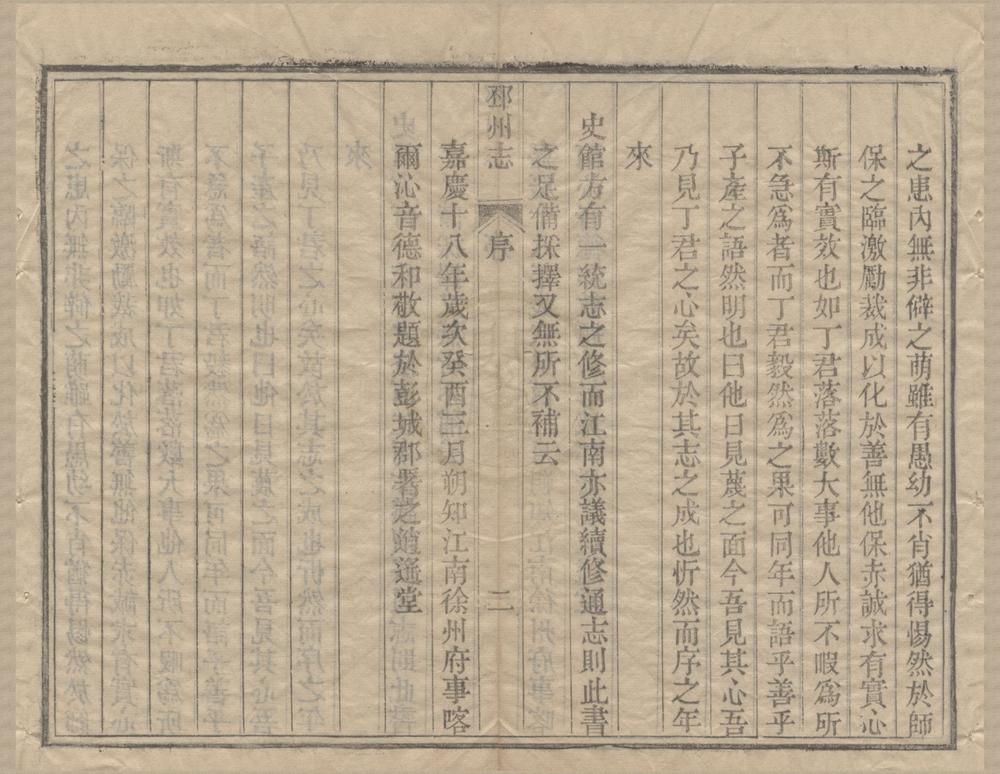 之患內無非僻之萌雖有愚幼不肖猶得惕然於師
保之臨激勵裁成以化於善無他保赤誠求有實心
斯有實效也如丁君落落數大事他人所不暇爲所
不急爲者而丁君毅然爲之果可同年而語乎善乎
子產之語然明也曰他日見蔑之面今吾見其心吾
乃見丁君之心矣故於其志之成也忻然而序之年
來
史館方有一統志之修而江南亦議續修通志則此書
之足備採擇又無所不補云
邳州志
序
二
嘉慶十八年歲次癸酉三月朔知江南徐州府事喀
爾沁音德和敬題於彭城郡署之逍遙堂